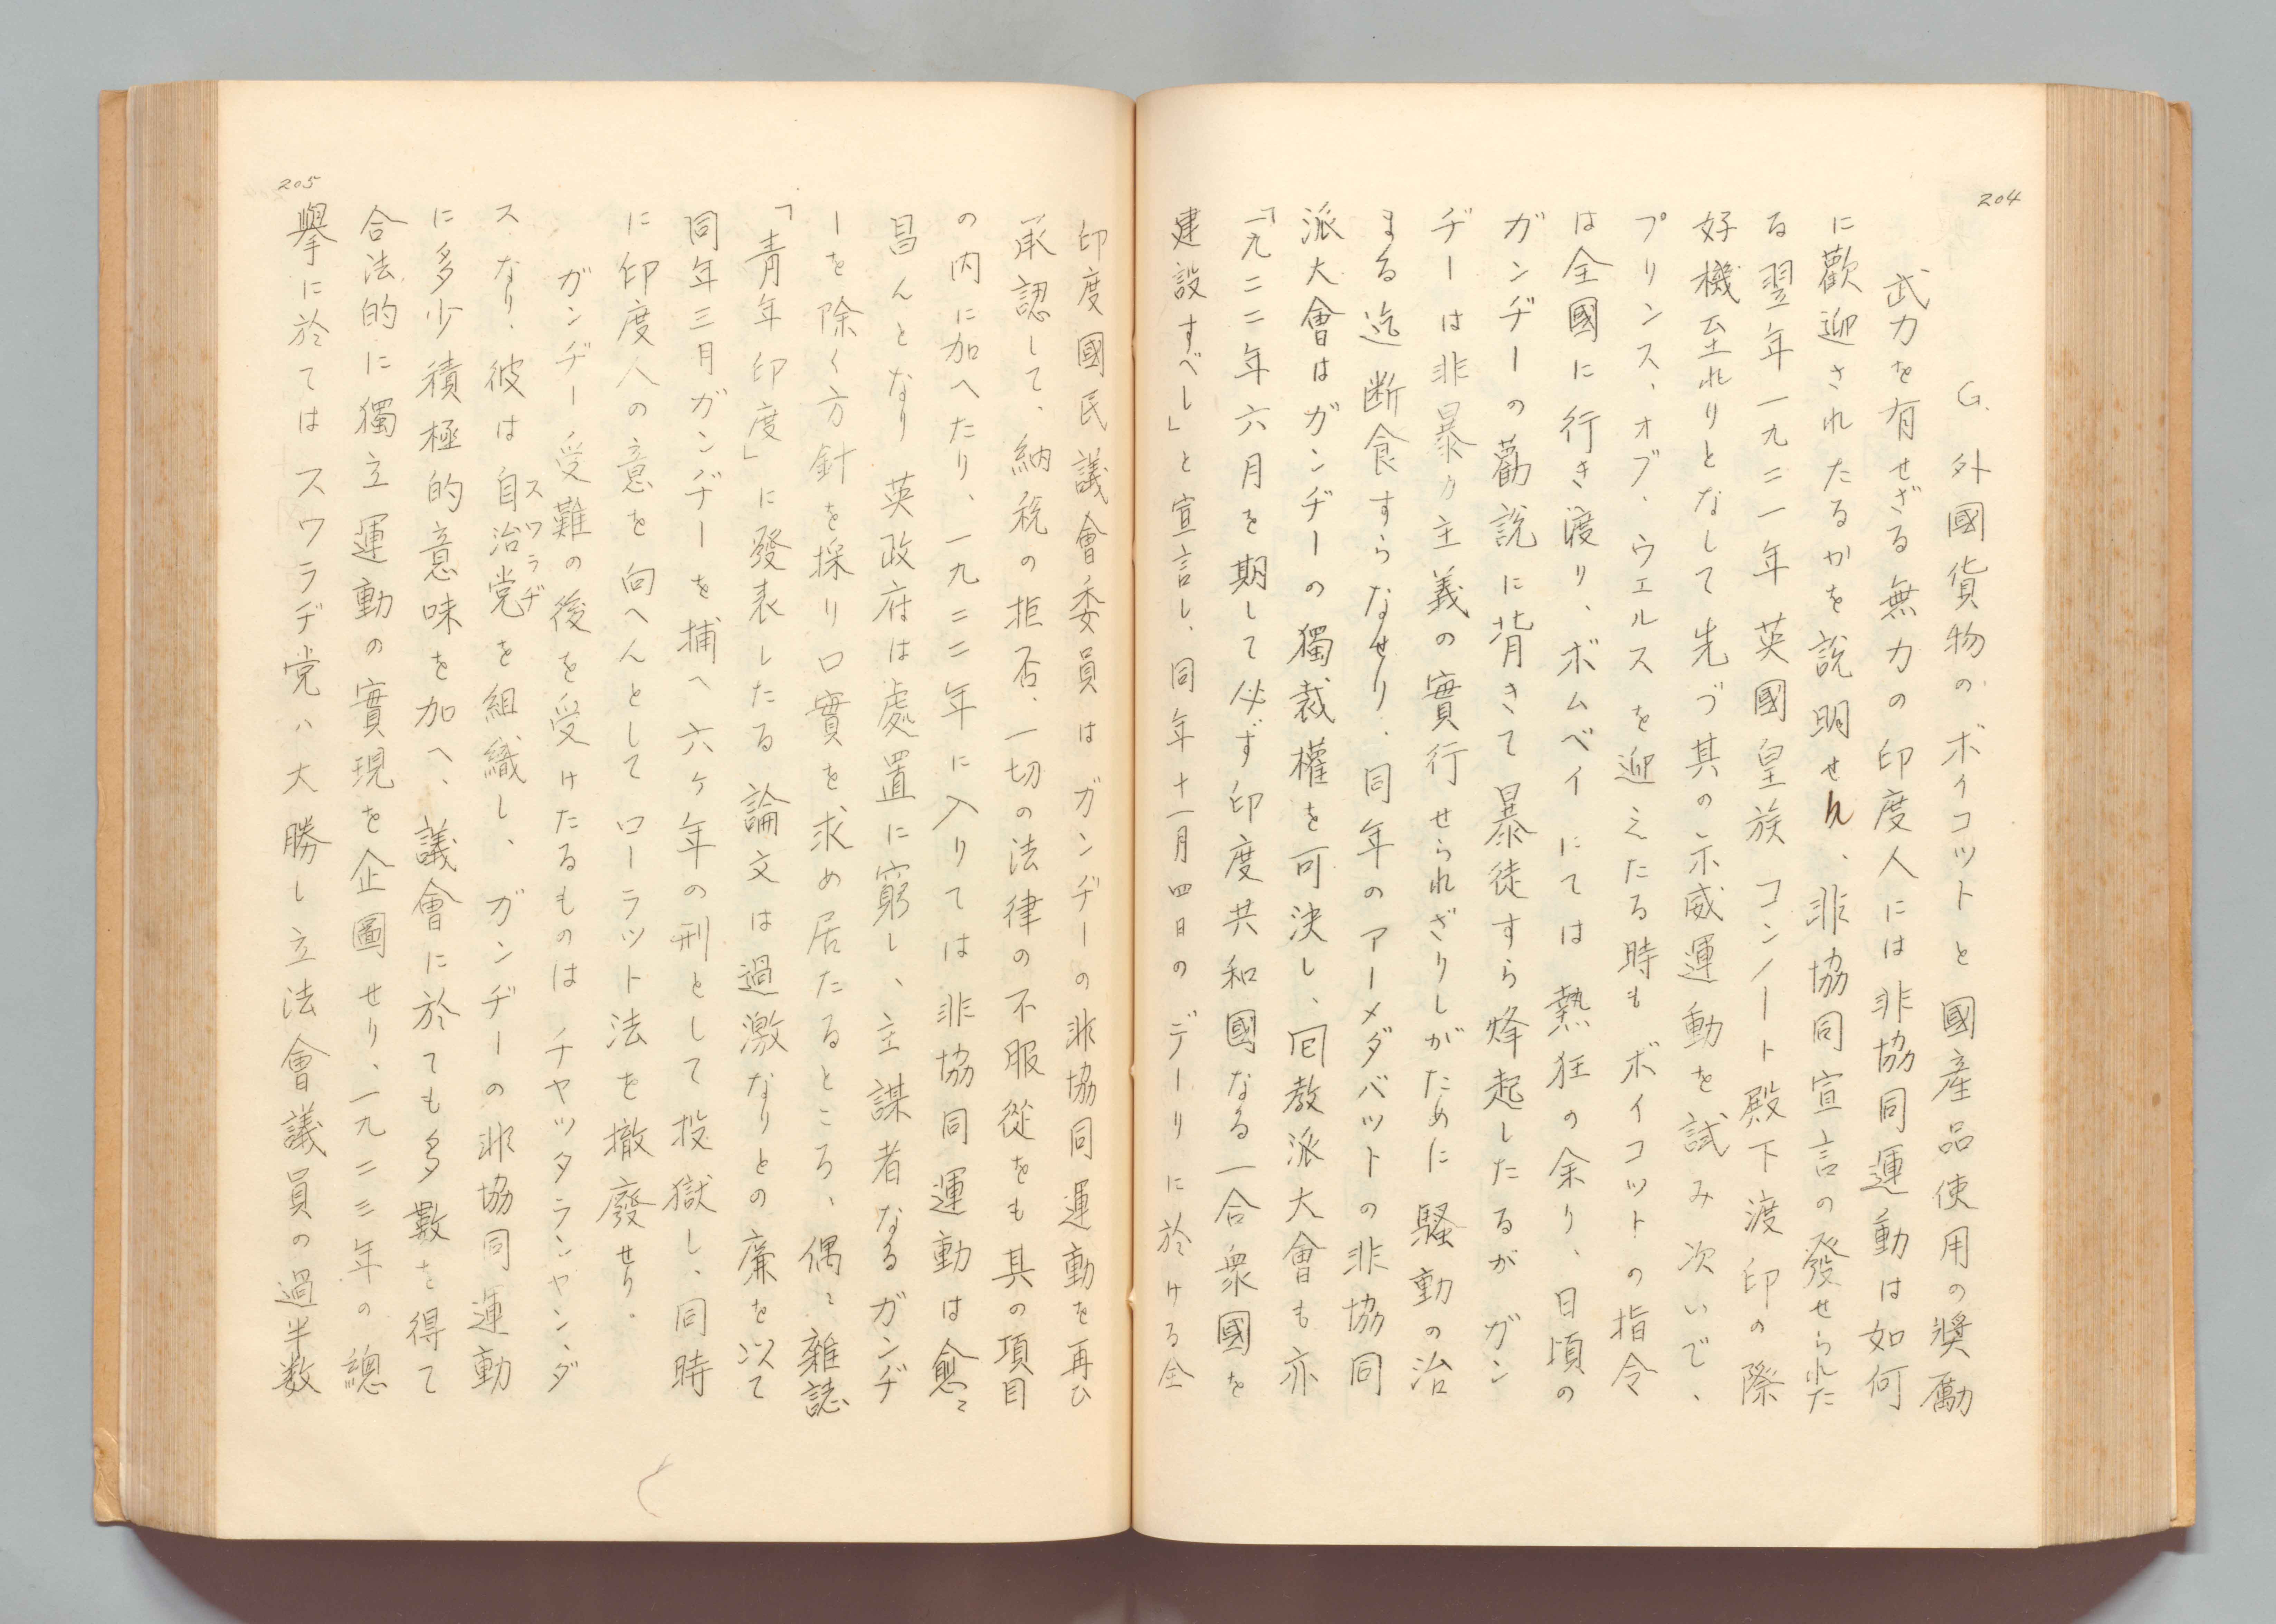 204
G. 外國貨物のボイコットと國産品使用の奬勵
武力を有せざる無力の印度人には非協同運動は如何
に歡迎されたるかを説明せん、非協同宣言の發せられた
る翌年一九二一年英國皇族コンノート殿下渡印の際
好機至れりとなして先づ其の示威運動を試み次いで、
プリンス、オブ、ウェルスを迎えたる時もボイコットの指令
は全國に行き渡り、ボムベイにては熱狂の余り、日頃の
ガンヂーの勸説に背きて暴徒すら烽起したるがガン
ヂーは非暴力主義の實行せられざりしがために騷動の治
まる迄断食すらなせり.同年のアーメダバットの非協同
派大會はガンヂーの獨裁權を可決し、回教派大會も亦
「一九二二年六月を期して必ず印度共和國なる一合衆國を
建設すべし」と宣言し、同年十一月四日のデーリに於ける全
印度國民議會委員はガンヂーの非協同運動を再ひ
承認して、納税の拒否、一切の法律の不服從をも其の項目
の内に加へたり、一九二二年に入りては非協同運動は愈〻
昌んとなり英政府は處置に窮し、主謀者なるガンヂ
ーを除く方針を採り口實を求め居たるところ、偶〻雜誌
「青年印度」に發表したる論文は過激なりとの廉を以て
同年三月ガンヂーを捕へ六ヶ年の刑として投獄し、同時
に印度人の意を向へんとしてローラット法を撤廢せり.
ガンヂー受難の後を受けたるものはチャツタランヤン、ダ
スなり、彼は自治党を組織し、ガンヂーの非協同運動
スワラヂ
に多少積極的意味を加へ、議會に於ても多數を得て
合法的に獨立運動の實現を企圖せり、一九二三年の總
擧に於てはスワラヂ党ハ大勝し立法會議員の過半数
205